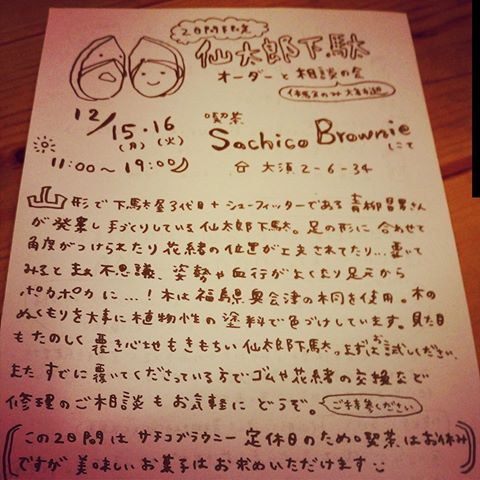 2日間限定
仙太郎下駄
オーダーと相談の会
12/15・16
(月)(火)
11:00〜19:00
喫茶
Sachico Brownie
にて
大須2-6-34
山形で下駄屋3代目+シューフィッターである青柳
が発案し手づくりしている仙太郎下駄。足の形に合わせて
角度がつけられたり花緒の位置が工夫されてたり…履いて
みると不思議、姿勢や血行がよくなり足元から
ポカポカに…!木は福島県奥会津の桐を使用。木の
ぬくもりを大事に植物性の塗料で色づけしています。見た目
もたのしく履き心地もきもちいい仙太郎下駄。まずはお試しください。
またすでに履いてくださっている方でゴムや花緒の交換など
修理のご相談もお気軽にどうぞ。
ご持参ください
この2日間はサチコブラウニー定休日のため喫茶はお休み
ですが美味しいお菓子はお求めいただけます